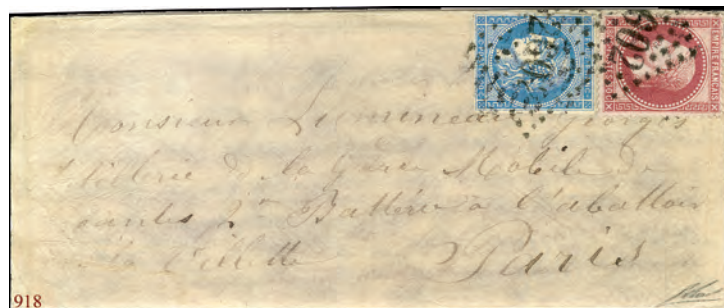 EMPIRE FRANÇAIS
Monsieur Lumineau Georges
Artillerie de la Garde Mobile de
Nantes 2e Batterie à l'abattoir
La Villette Paris
918